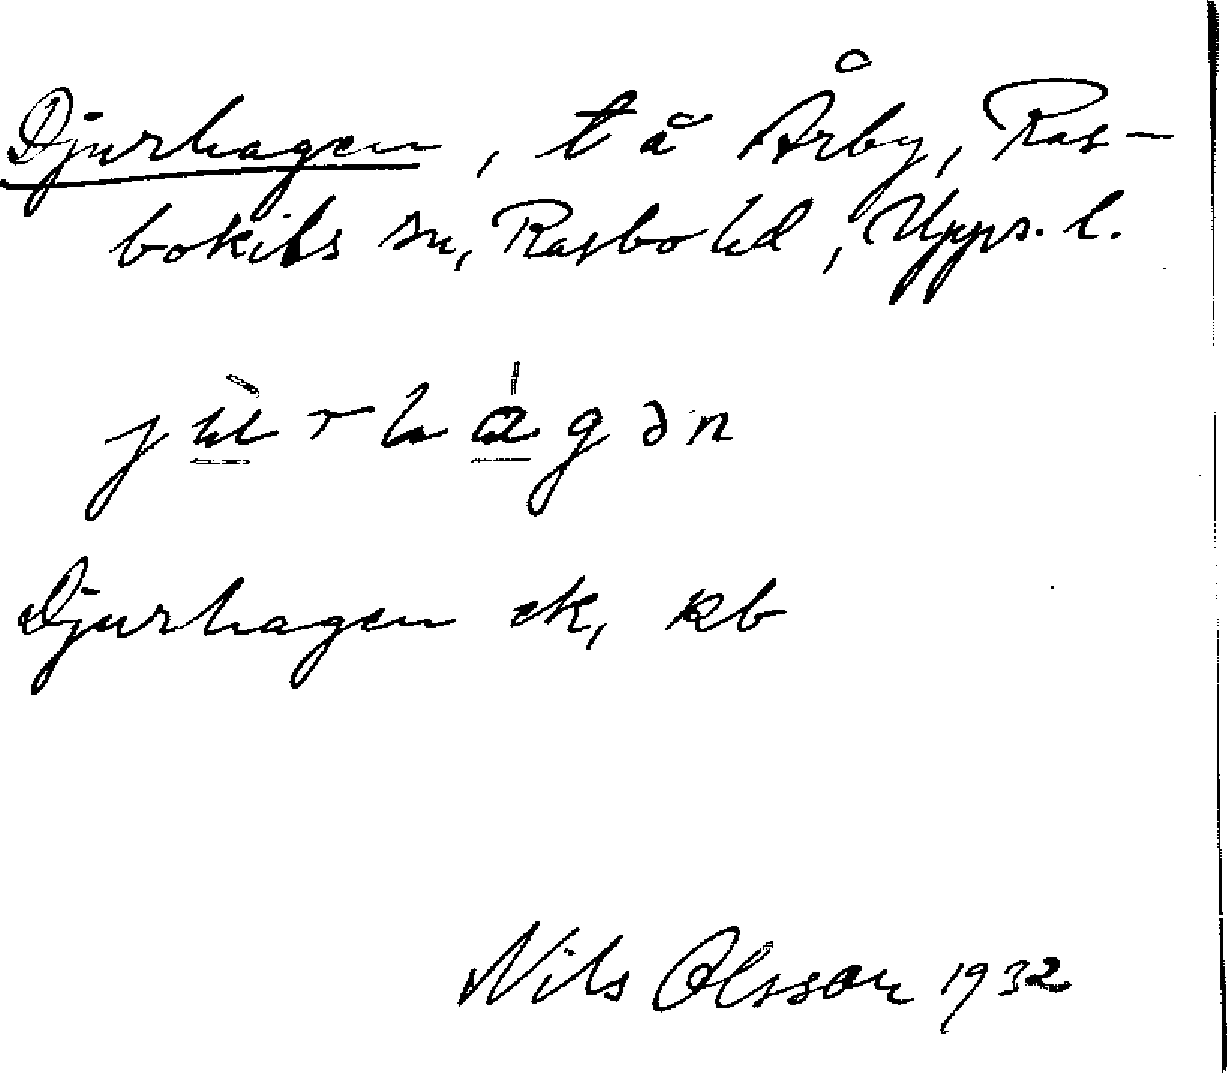 Djurhagen, t å Årby, Ras-
bokils sn, Rasbo hd, Upps. l.
jùrhágən
Djurhagen ek, kb
Nils Olsson 1932